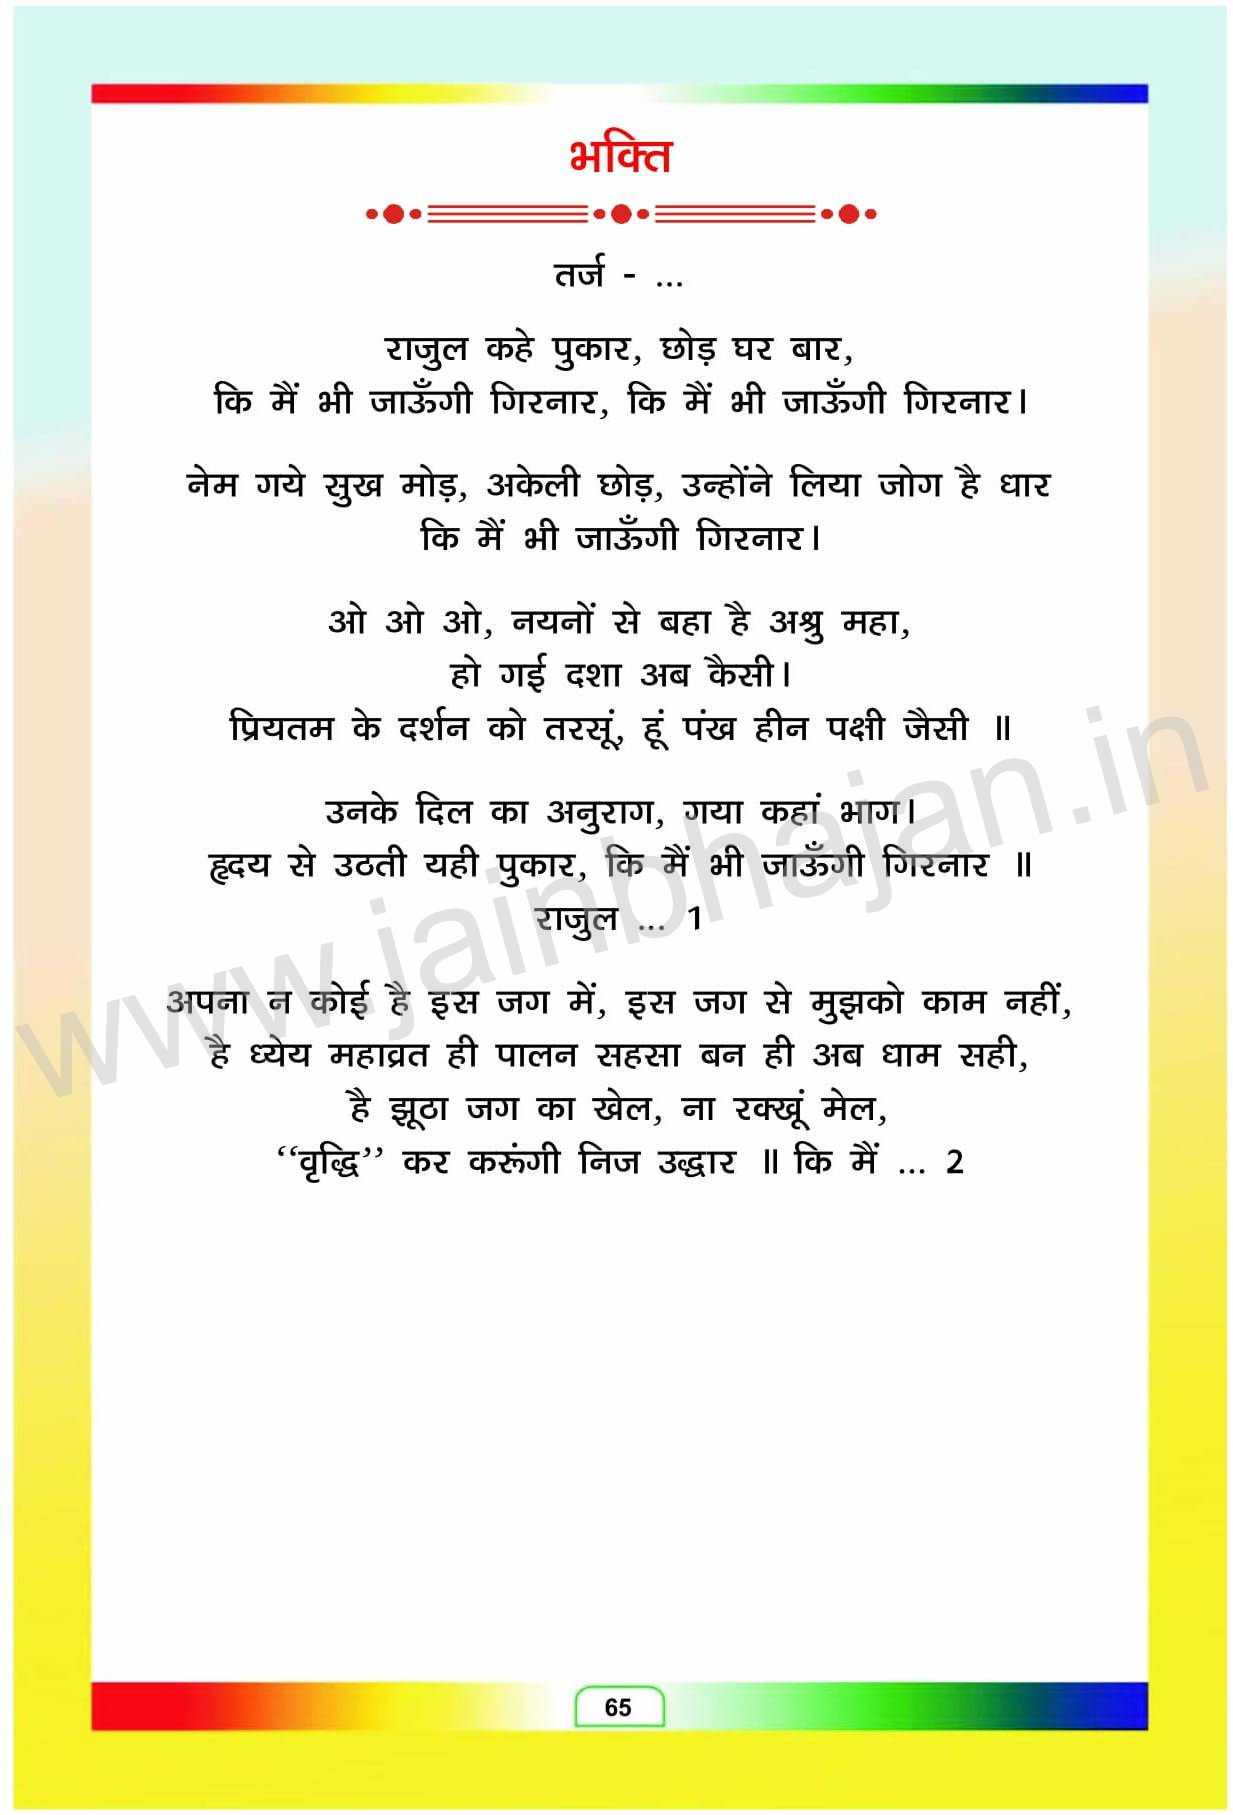 भक्ति
तर्ज - ...
राजुल कहे पुकार, छोड़ घर बार,
कि मैं भी जाऊँगी गिरनार, कि मैं भी जाऊँगी गिरनार।
नेम गये सुख मोड़, अकेली छोड़, उन्होंने लिया जोग है धार
कि मैं भी जाऊँगी गिरनार।
ओ ओ ओ, नयनों से बहा है अश्रु महा,
हो गई दशा अब कैसी।
प्रियतम के दर्शन को तरसूं, हूं पंख हीन पक्षी जैसी ॥
उनके दिल का अनुराग, गया कहां भाग।
हृदय से उठती यही पुकार, कि मैं भी जाऊँगी गिरनार ॥
राजुल ... 1
अपना न कोई है इस जग में, इस जग से मुझको काम नहीं,
है ध्येय महाव्रत ही पालन सहसा बन ही अब धाम सही,
है झूठा जग का खेल, ना रक्खूं मेल,
‘‘वृद्धि’’ कर करूंगी निज उद्धार ॥ कि मैं ... 2
www.jainbhajan.in
65